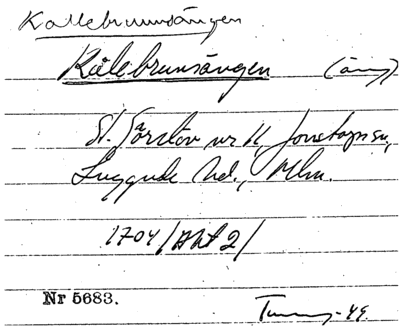 Kållebrunnsängen
Kålebrunsängen (äng)
St. Görslöv nr 11, Jonstorps sn,
Luggude hd., Mlm.
1704/Akt 2/
Nr 5683.